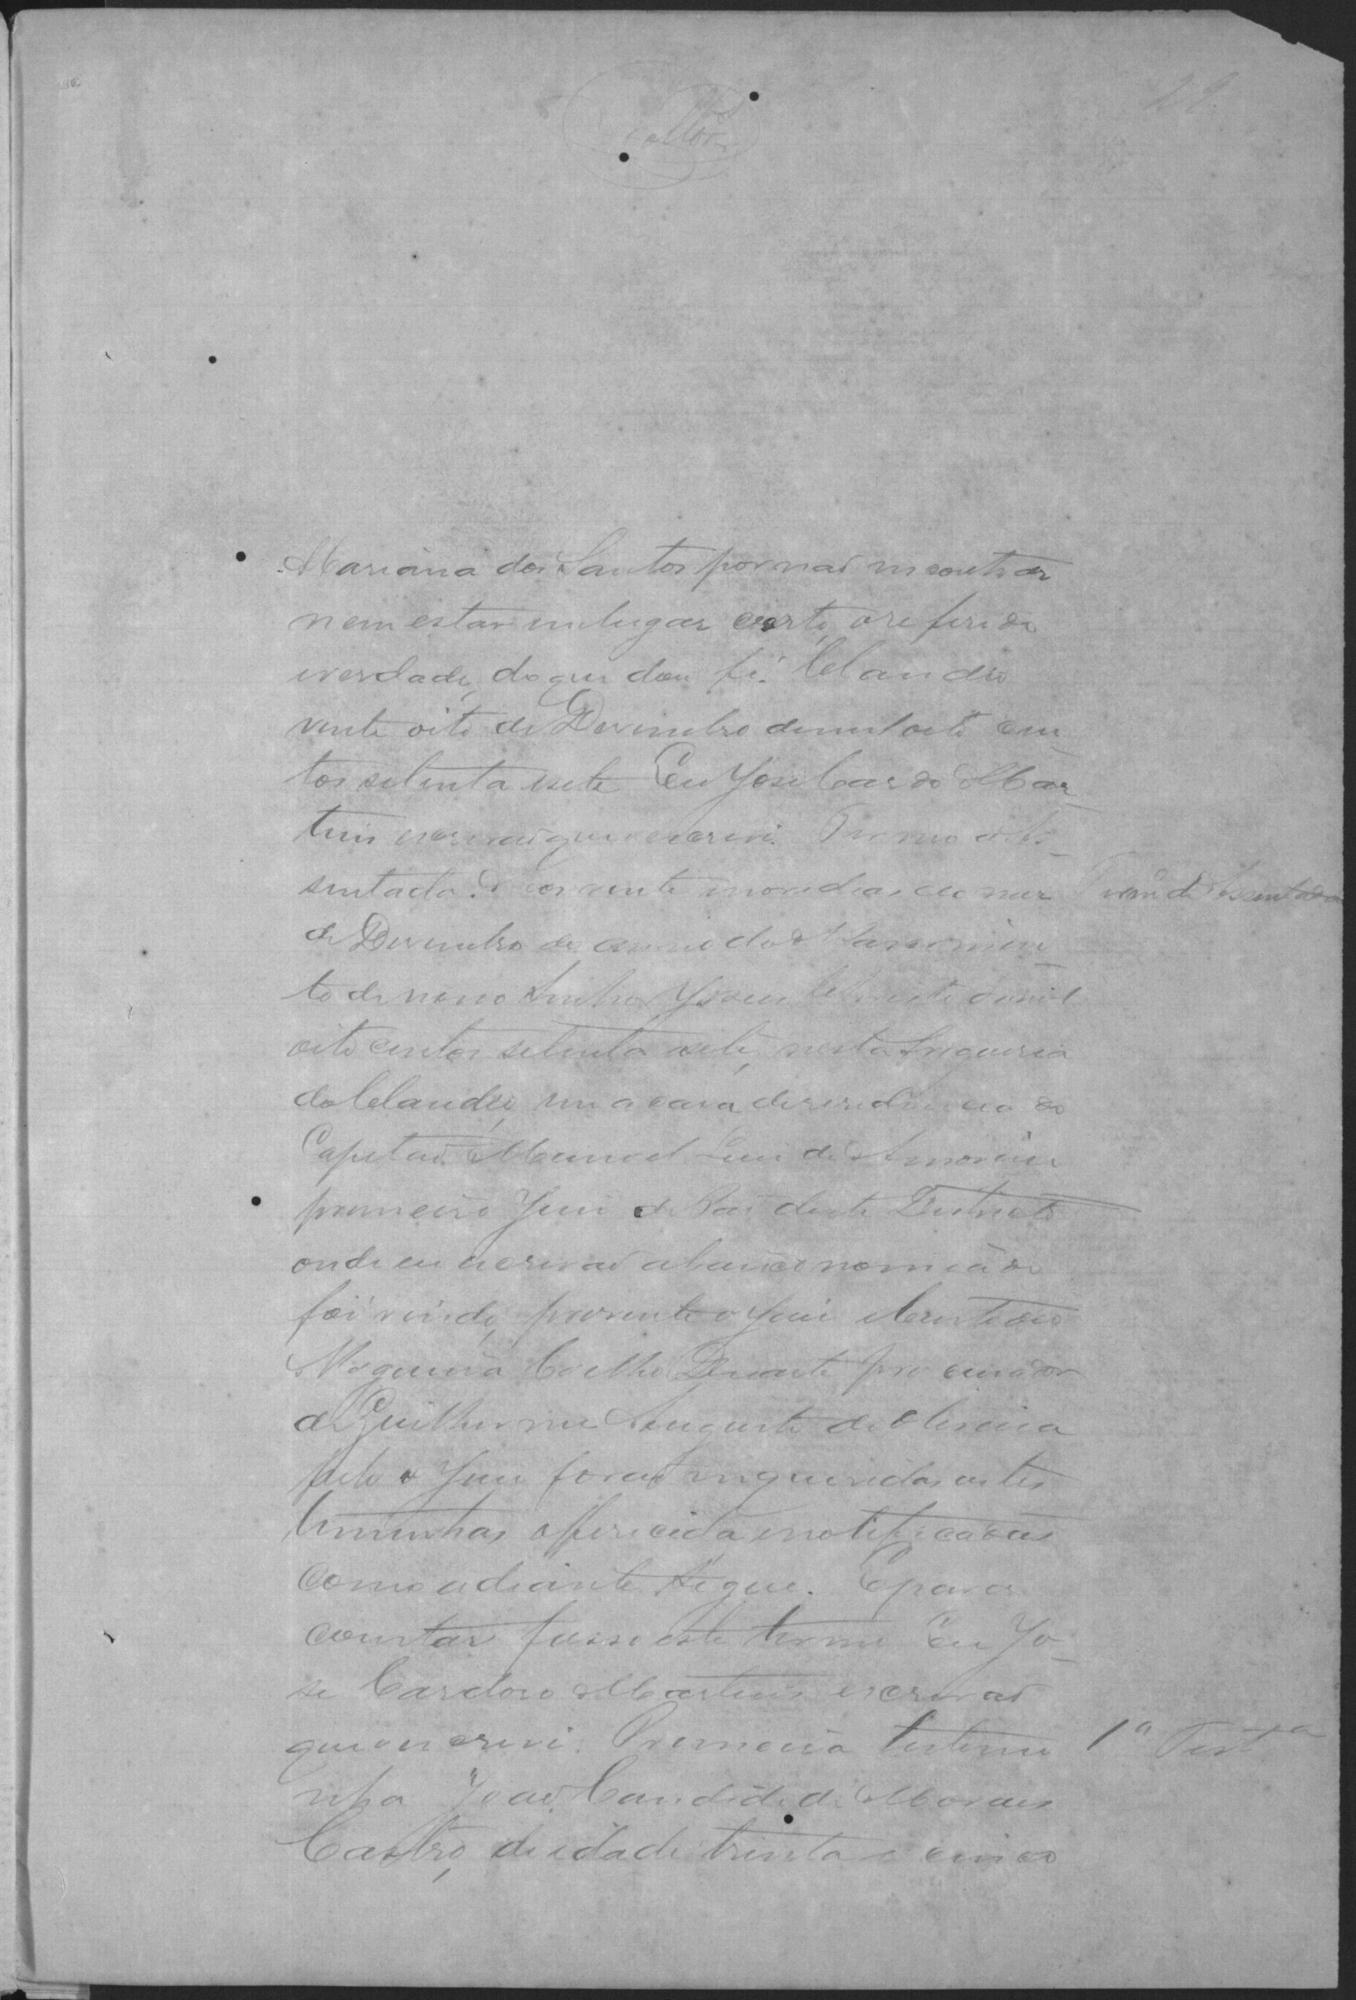 29
Marianna dos Santos por nao incontrar
nem estar in lugar certo, o referido
e verdade, do que dou fé. Claudio
vinte oito de Desembro de mil oito cen-
tos setenta e sete Eu José Cardoso Mar-
tins escrivaõ que escrevi. Termo de As-
sentada. Aos vinte nove dias do mez
Termo de Assentada
de Desembro do anno do Nascimen-
to de nosso Senhor Jesus Christo de mil
oito centos setenta e sete, nesta Freguesia
do Claudio, em a casa de residencia do
Capitaõ Manoel Luis de Amorim
primeiro Juis de Pas deste Destricto
onde eu escrivaõ abaixo nomeado
foi vindo, presente o Juis
Nogueira Coelho Duarte procurador
de Guilherme Augusto de Oliveira
pelo Juis foraõ inqueridas as tes
timunhas offericida e notificadas
como adiante segue. E para
constar fasso este termo Eu Jo-
se Cardoso Martins escrivaõ
que escrevi. Primeira testemu
1ª Testª
nha Joaõ Candido de Moraes
Castro, de idade trinta e cinco